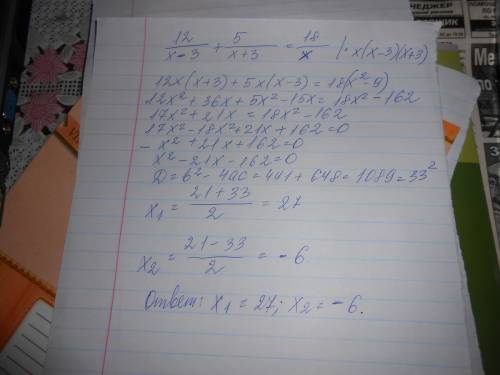 12/(x-3) + 5/(x+3) = 18/x /· x(x-3)(x+3)
12x(x+3) + 5x(x-3) = 18(x²-9)
12x²+36x+5x²-15x = 18x²-162
17x²+21x = 18x²-162
17x²-18x²+21x+162=0
-x²+21x+162=0
x²-21x-162=0
D=b²-4ac=441+648=1089=33²
x₁ = (21+33)/2 = 27
x₂ = (21-33)/2 = -6
Ответ: x₁=27; x₂=-6.
НЕДЖЕР
Ме